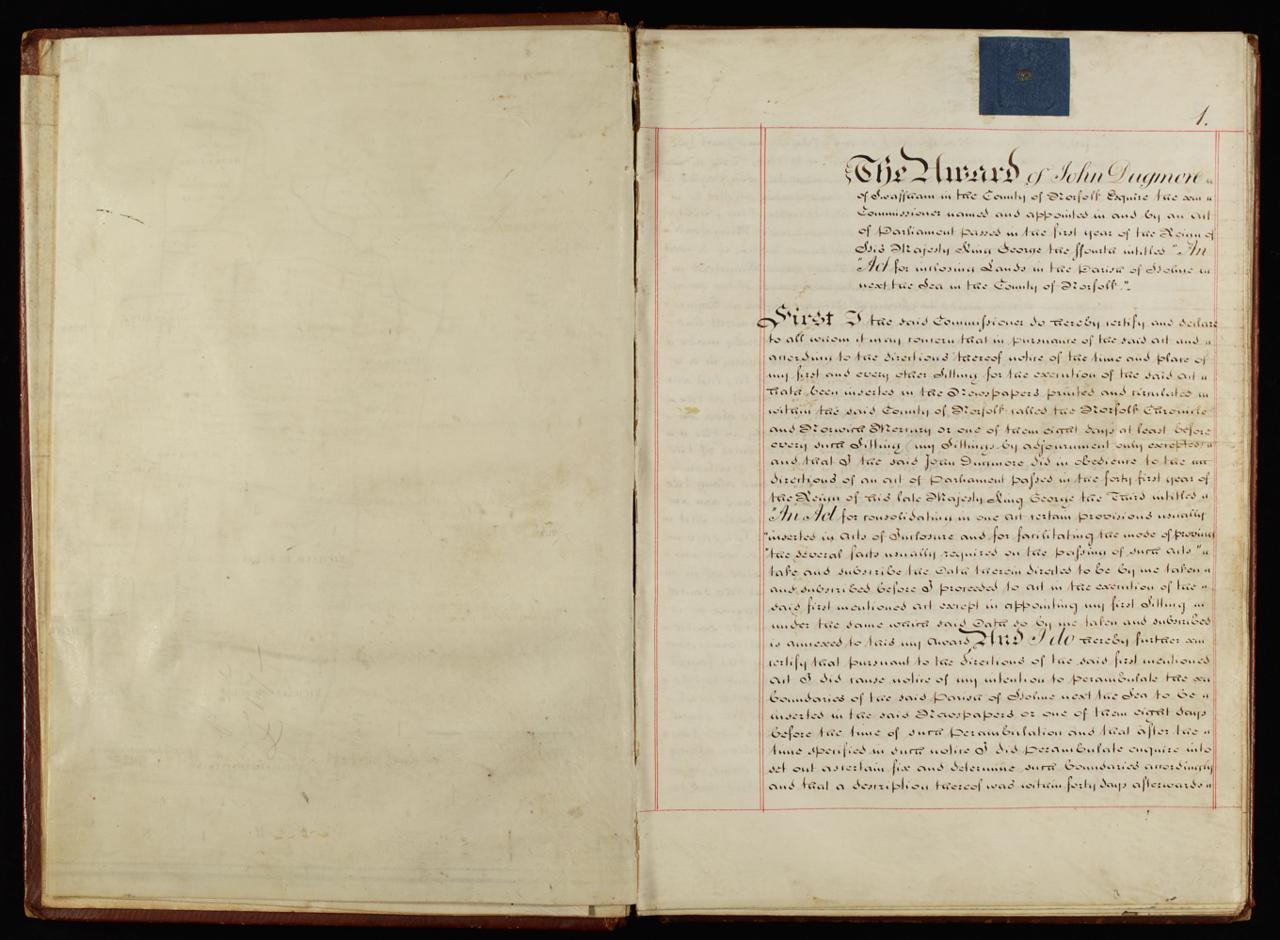 1.
The Award of John Dugmore
of Swaffham in the County of Norfolk Esquire the
Commissioner named and appointed in and by an Act
of Parliament passed in the first year of the Reign of
His Majesty King George the ffourth intitled "An
"Act for inclosing Lands in the Parish of Holme
next the Sea in the County of Norfolk".
First I the said Commissioner do hereby certify and declare
to all whom it may concern that in pursuance of the said act and
according to the directions thereof notice of the time and place of
my first and every other Sitting for the execution of the said act
hath been inserted in the Newspapers printed and circulated
within the said County of Norfolk called the Norfolk Chronicle
and Norwich Mercury or one of them eight days at least before
every such Sitting (my Sittings by adjournment only excepted)
and that I the said John Dugmore did in obedience to the
directions of an act of Parliament passed in the forty first year of
the Reign of his late Majesty King George the Third intitled
"An Act for consolidating in one act certain provisions usually
"inserted in Acts of Inclosure and for facilitating the mode of proving
"the several facts usually required on the passing of such acts"
take and subscribe the Oath therein directed to be by me taken
and subscribed before I proceeded to act in the execution of the
said first mentioned act except in appointing my first Sitting
under the same which said Oath so by me taken and subscribed
is annexed to this my Award And I do hereby further
certify that pursuant to the directions of the said first mentioned
act I did cause notice of my intention to perambulate the
boundaries of the said Parish of Holme next the Sea to be
inserted in the said Newspapers or one of them eight days
before the time of such Perambulation and that after the
time specified in such notice I did perambulate enquire into
set out ascertain fix and determine such boundaries accordingly
and that a description thereof was within forty days afterwards